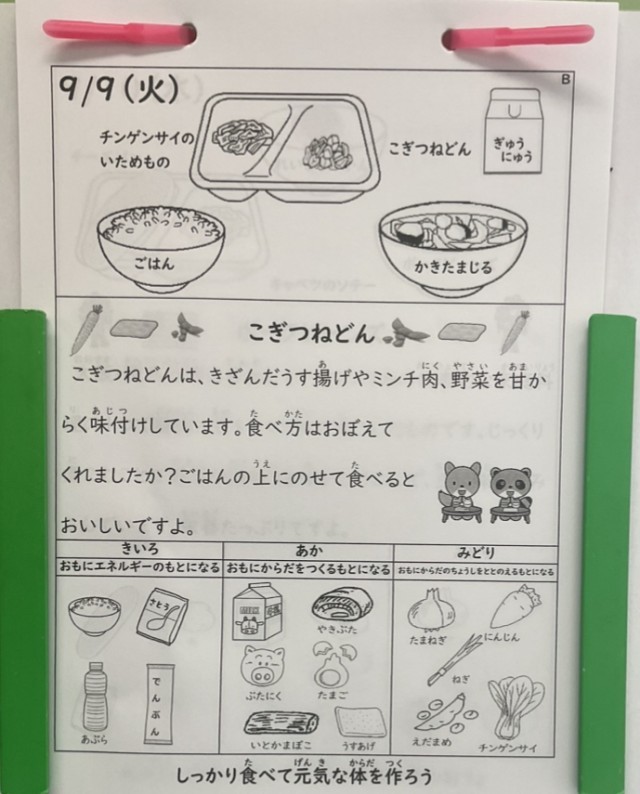 9/9(火)
B
チンゲンサイの
いためもの
こぎつねどん
ぎゅう
にゅう
ごはん
かきたまじる
こぎつねどん
こぎつねどんは、きざんだうす揚げやミンチ肉、野菜を甘か
らく味付けしています。食べ方はおぼえて
くれましたか?ごはんの上にのせて食べると
おいしいですよ。
きいろ
おもにエネルギーのもとになる
あか
おもにからだをつくるもとになる
みどり
おもにからだのちょうしをととのえるもとになる
さとう
あぶら
でんぷん
やきぶた
ぶたにく
たまご
いとかまぼこ
うすあげ
たまねぎ
にんじん
ねぎ
えだまめ
チンゲンサイ
しっかり食べて元気な体を作ろう